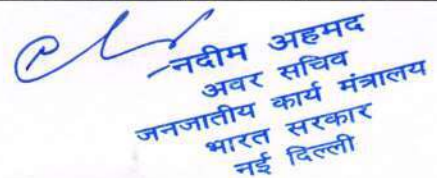 नदीम अहमद
अवर सचिव
जनजातीय कार्य मंत्रालय
भारत सरकार
नई दिल्ली